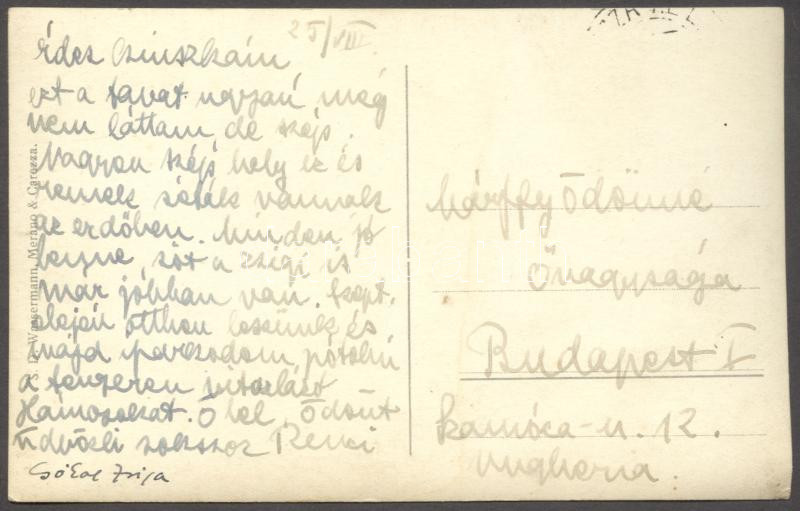 25/VIII.
Édes Csinszkám
ezt a tavat ugyan még
nem láttam, de szép.
Nagyon szép hely ez és
remek séták vannak
az erdőben. Minden jó
lenne, sőt a Zsigi is
már jobban van. Szept.
elején otthon leszünk és
majd iparkodom pótolni
a
Ödönt
üdvözli sokszor Renci
Csókol Zsiga
S. D. Wassermann, Merano & Carezza.
Márffy Ödönné
Őnagysága
Budapest I
Kamóca-u. 12.
Ungheria.